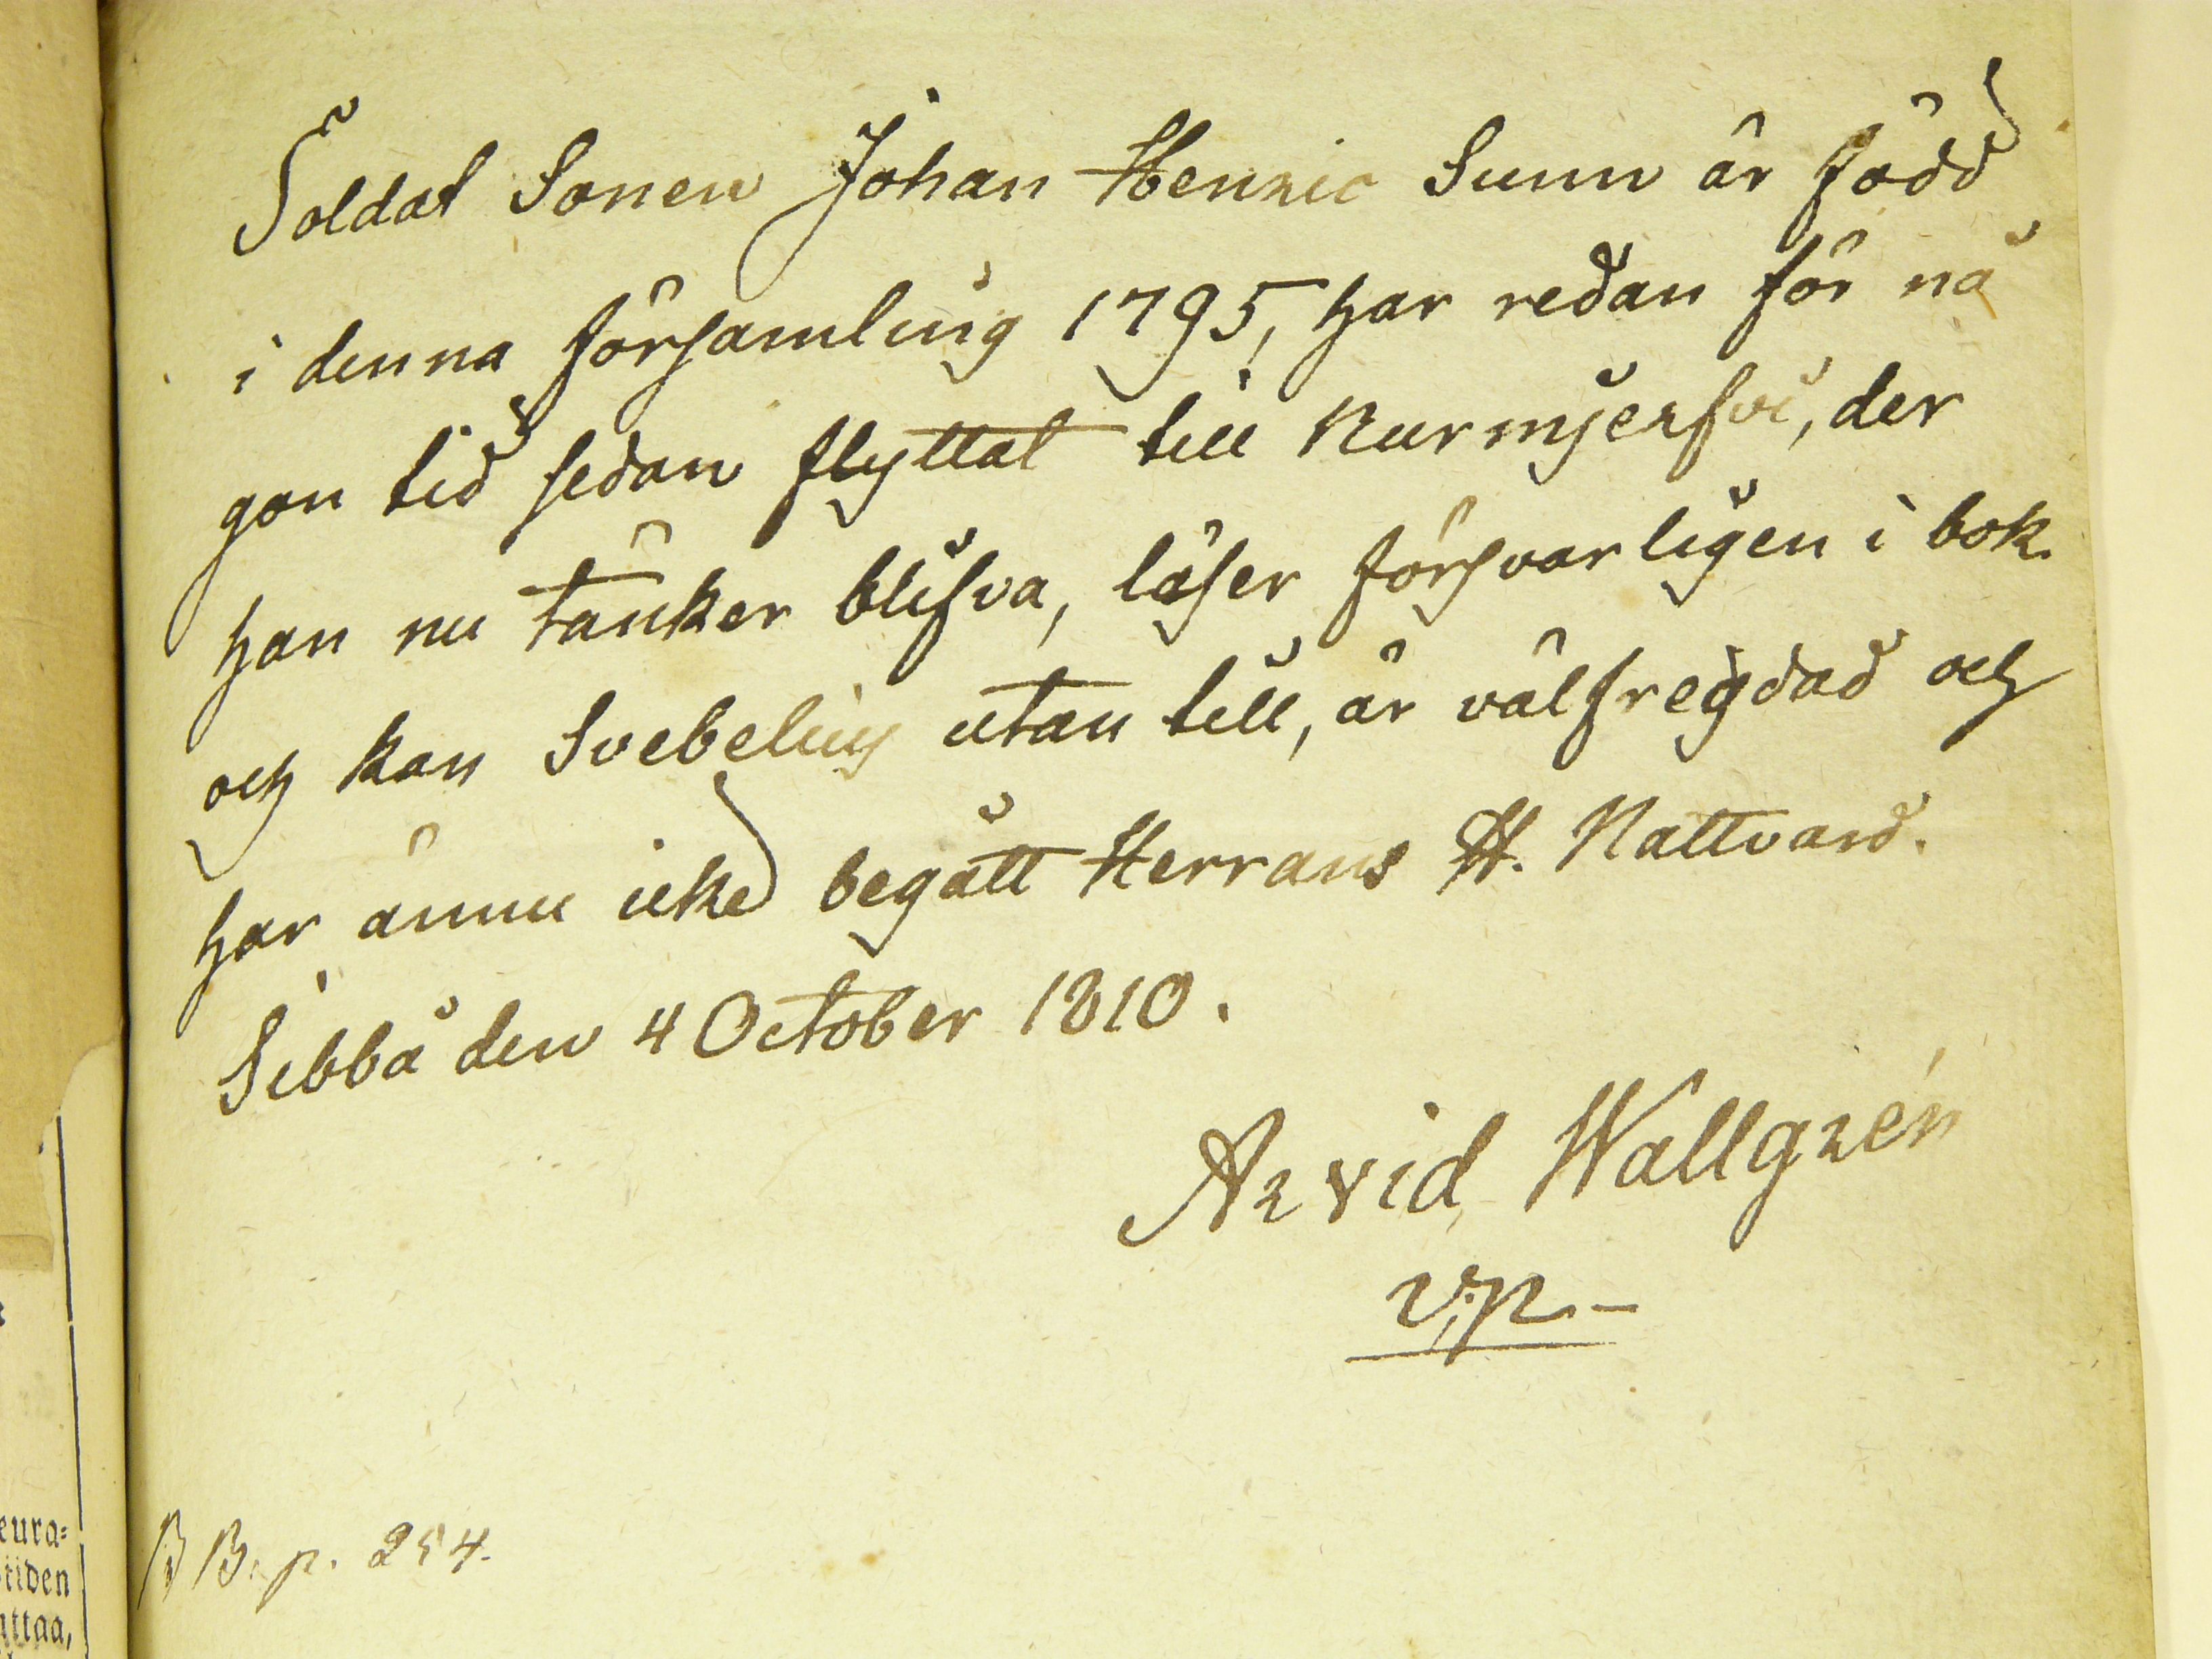 Soldat Sonen Johan Henric Sunn är född
i denna församling 1795, har redan för nå
gon tid sedan flyttat till Nurmijerfvi, der
han nu tänker blifva, läser försvarligen i bok
och kan Svebelius utan till, är välfregdad och
har ännu icke begått Herrans H. Nattvard.
Sibbå den 4 October 1810.
Arvid Wallgrén
v.p.-
B. p. 254.
eura=
tiden
attaa,